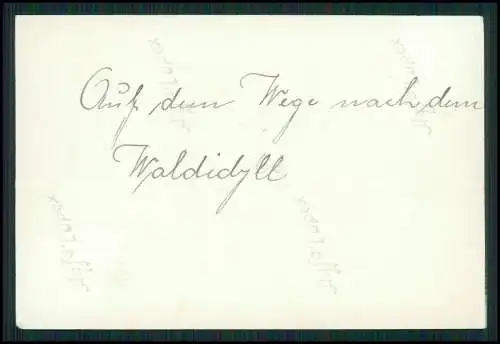 Auf dem Wege nach dem
Waldidyll